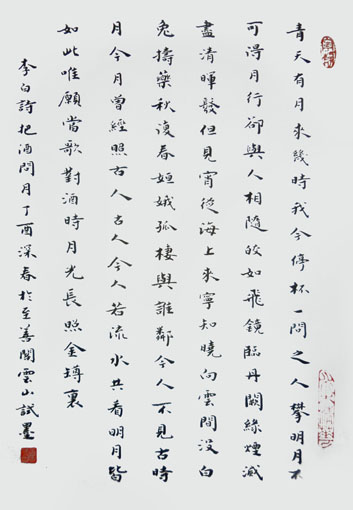 青天有月來幾時我今停杯一問之人攀明月不
可得月行卻與人相隨皎如飛鏡臨丹闕綠煙滅
盡清暉發但見宵從海上來寧知曉向雲間沒白
兔擣藥秋復春姮娥孤棲與誰鄰今人不見古時
月今月曾經照古人古人今人若流水共看明月皆
如此唯願當歌對酒時月光長照金罇裏
李白詩把酒問月丁酉深春於至善閣雲山試墨